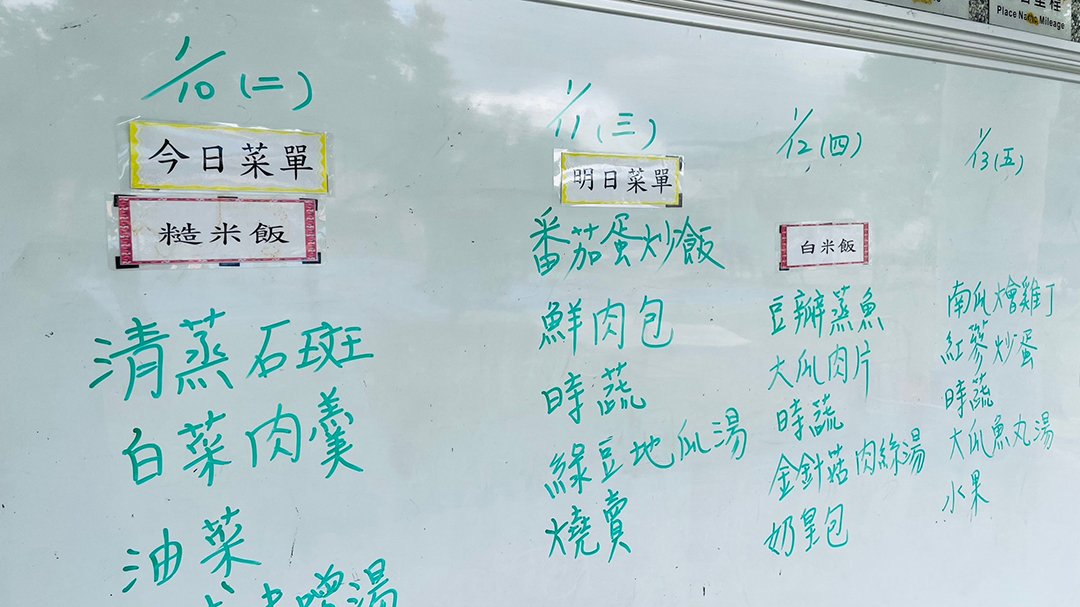 里程
Place Name Mileage
1/10 (二)
今日菜單
糙米飯
清蒸石斑
白菜肉羹
油菜
湯
1/11 (三)
明日菜單
番茄蛋炒飯
鮮肉包
時蔬
綠豆地瓜湯
燒賣
1/12 (四)
白米飯
豆瓣蒸魚
大瓜肉片
時蔬
金針菇肉絲湯
奶皇包
1/13 (五)
南瓜燴雞丁
紅蔘炒蛋
時蔬
大瓜魚丸湯
水果